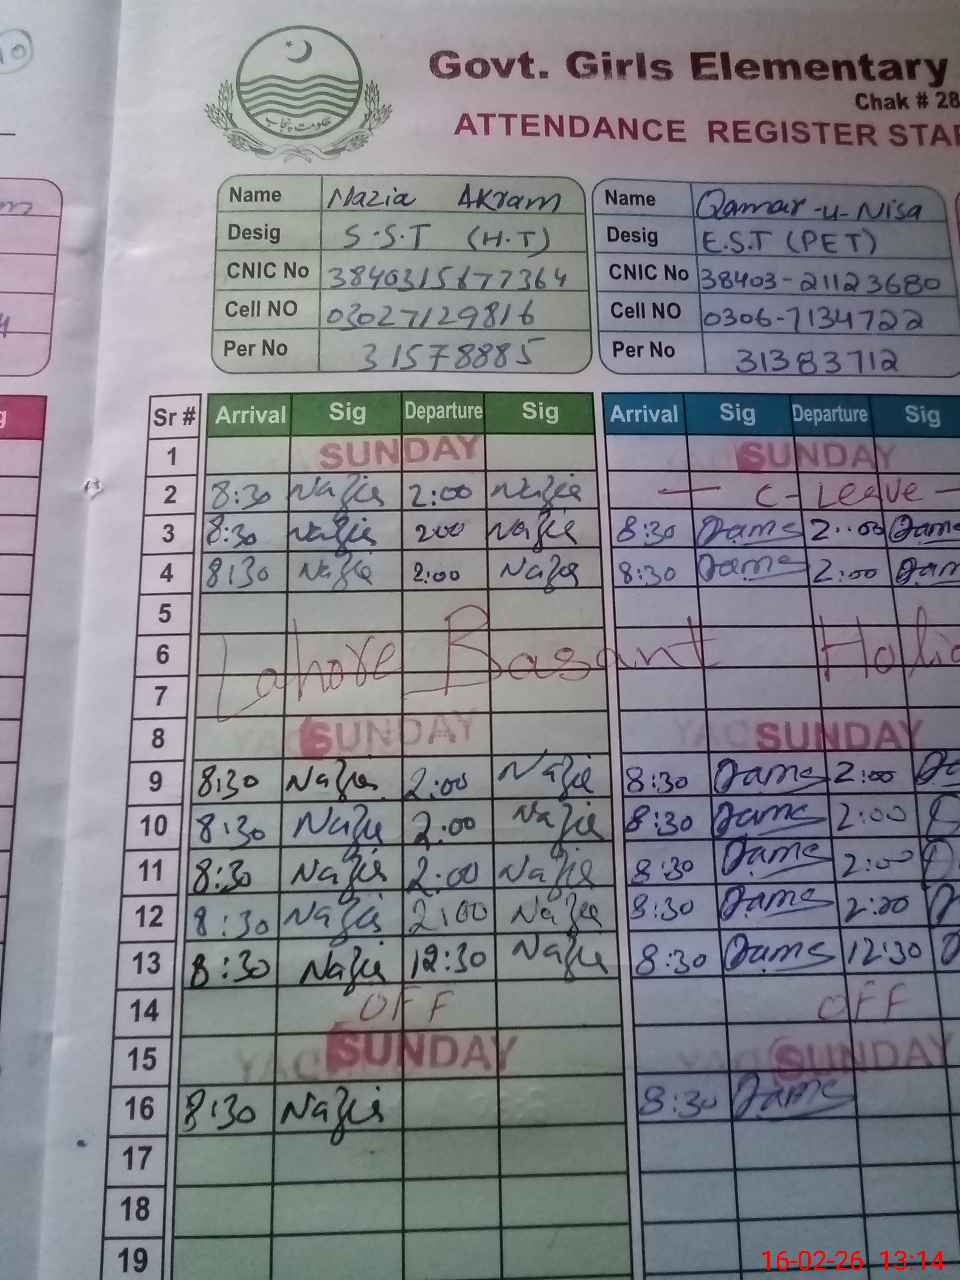 حکومت پنجاب
Govt. Girls Elementary
Chak # 28
ATTENDANCE REGISTER STAF
Name Nazia Akram Name Qamar-u-Nisa
Desig S.S.T (H.T) Desig E.S.T (PET)
CNIC No CNIC No 38403-21123680
Cell NO 03027129816 Cell NO 0306-7134722
Per No 31578885 Per No 31383712
Sr # Arrival Sig Departure Sig Arrival Sig Departure Sig
1 SUNDAY SUNDAY
2 8:30 Nazia 2:00 Nazia C-Leave
3 8:30 Nazia 2:00 Nazia 8:30 2:00
4 8:30 Nazia 2:00 Nazia 8:30 2:00
5
6 Lahore Basant Holid
7
8 SUNDAY SUNDAY
9 8:30 Nazia 2:00 Nazia 8:30 2:00
10 8:30 Nazia 2:00 Nazia 8:30 2:00
11 8:30 Nazia 2:00 Nazia 8:30 2:00
12 8:30 Nazia 2:00 Nazia 8:30 2:00
13 8:30 Nazia 12:30 Nazia 8:30 12:30
14 OFF OFF
15 SUNDAY SUNDAY
16 8:30 Nazia 8:30
17
18
19
16-02-26 13:14